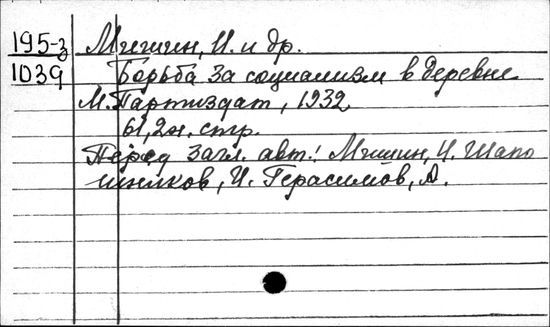 195-з Мишин, И. и др.
1039 Борьба за социализм в деревне
М. Партиздат, 1932
61, 2н. стр.
Перед загл. авт.: Мишин, И. Шапо
шников, И. Герасимов, А.